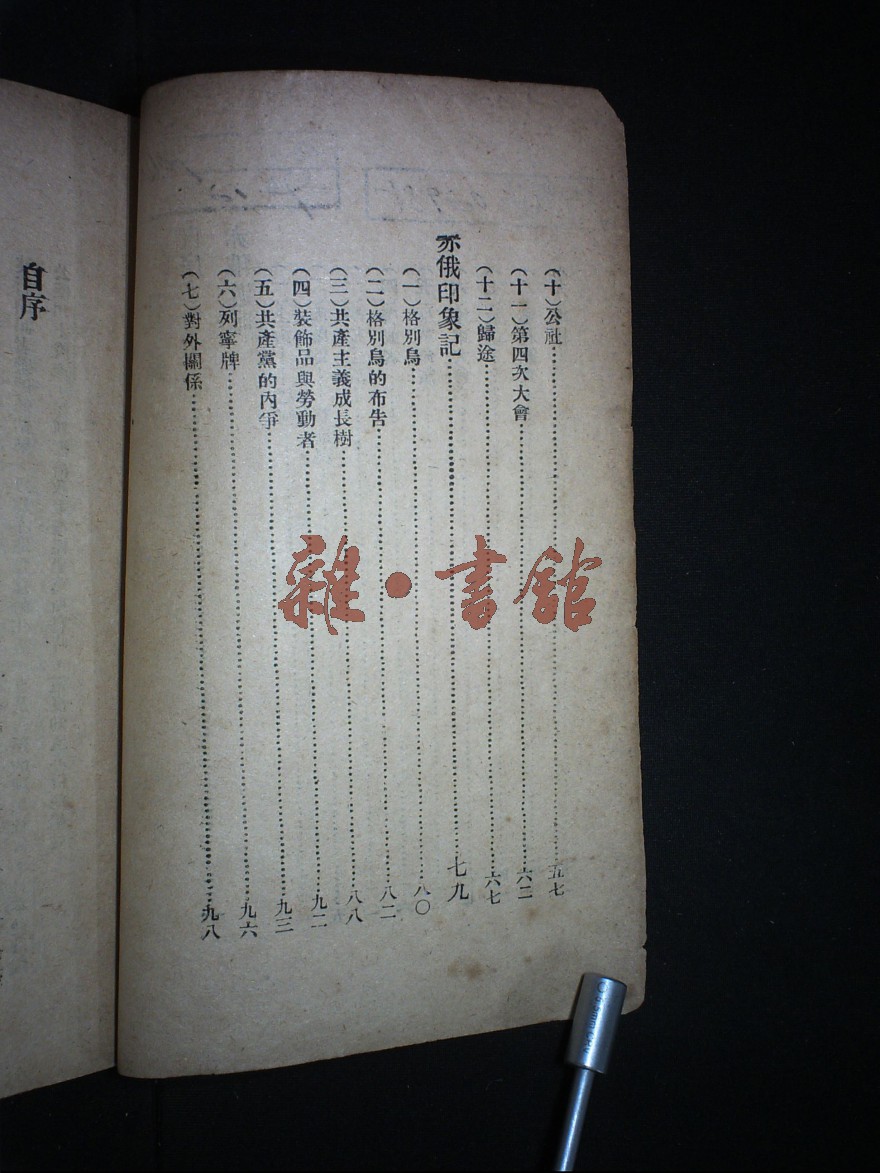 (十)公社……五七
(十一)第四次大會……六二
(十二)歸途……六七
赤俄印象記……七九
(一)格別烏……八〇
(二)格別烏的布告……八二
(三)共產主義成長樹……八八
(四)裝飾品與勞動者……九二
(五)共產黨的內爭……九三
(六)列寧牌……九六
(七)對外關係……九八
自序
雜·書館